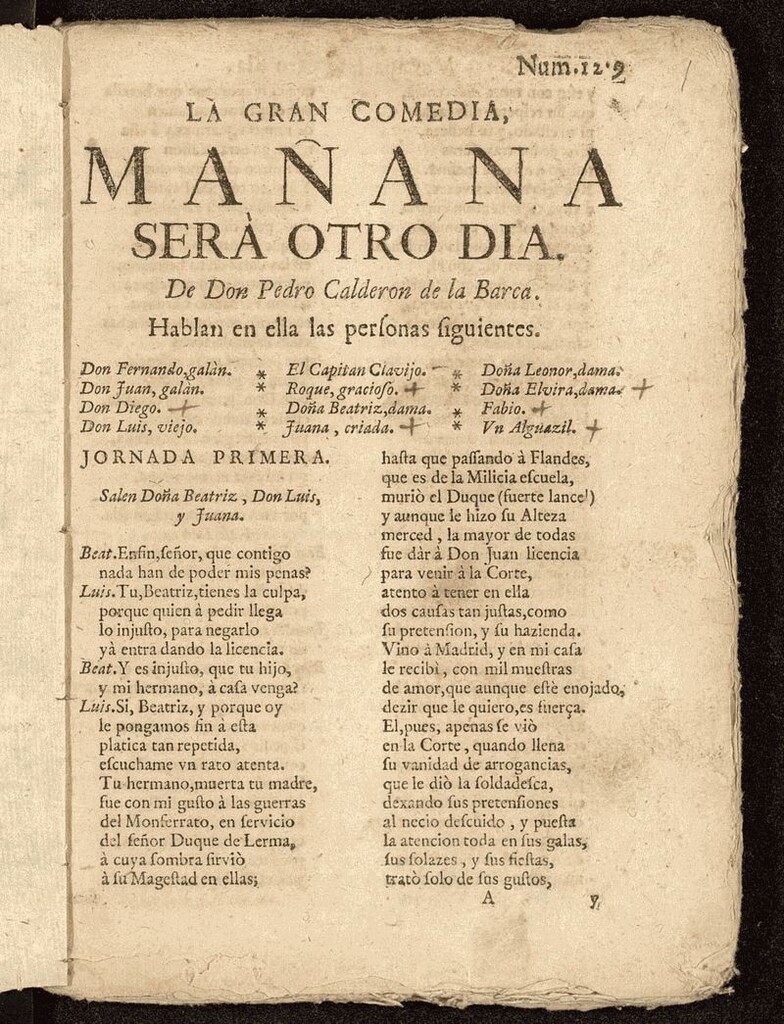 Num. 12·9
LA GRAN COMEDIA,
MAÑANA
SERÀ OTRO DIA.
De Don Pedro Calderon de la Barca.
Hablan en ella las perſonas ſiguientes.
Don Fernando, galàn. * El Capitan Clavijo. * Doña Leonor, dama.
Don Juan, galàn. * Roque, gracioſo. + * Doña Elvira, dama. +
Don Diego. + * Doña Beatriz, dama. * Fabio. +
Don Luis, viejo. * Juana, criada. + * Vn Alguazil. +
JORNADA PRIMERA.
Salen Doña Beatriz, Don Luis,
y Juana.
Beat. Enfin, ſeñor, que contigo
nada han de poder mis penas?
Luis. Tu, Beatriz, tienes la culpa,
porque quien à pedir llega
lo injuſto, para negarlo
yà entra dando la licencia.
Beat. Y es injuſto, que tu hijo,
y mi hermano, à caſa venga?
Luis. Si, Beatriz, y porque oy
le pongamos fin à eſta
platica tan repetida,
eſcuchame vn rato atenta.
Tu hermano, muerta tu madre,
fue con mi guſto à las guerras
del Monferrato, en ſervicio
del ſeñor Duque de Lerma,
à cuya ſombra ſirviò
à ſu Mageſtad en ellas;
haſta que paſſando à Flandes,
que es de la Milicia eſcuela,
muriò el Duque (fuerte lance!)
y aunque le hizo ſu Alteza
merced, la mayor de todas
fue dàr à Don Juan licencia
para venir à la Corte,
atento à tener en ella
dos cauſas tan juſtas, como
ſu pretenſion, y ſu hazienda.
Vino à Madrid, y en mi caſa
le recibì, con mil mueſtras
de amor, que aunque eſtè enojado,
dezir que le quiero, es fuerça.
El, pues, apenas ſe viò
en la Corte, quando llena
ſu vanidad de arrogancias,
que le diò la ſoldadeſca,
dexando ſus pretenſiones
al necio deſcuido, y pueſta
la atencion toda en ſus galas,
ſus ſolazes, y ſus fieſtas,
tratò ſolo de ſus guſtos,
A y,